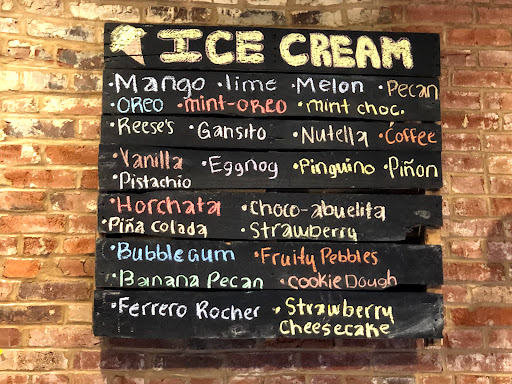 ICE CREAM
•Mango •lime •Melon •Pecan
•OREO •mint-OREO •mint choc.
•Reese's •Gansito •Nutella •Coffee
•Vanilla •Eggnog •Pinguino •Piñon
•Pistachio
•Horchata •Choco-abuelita
•Piña colada •Strawberry
•Bubblegum •Fruity Pebbles
•Banana Pecan •cookie Dough
•Ferrero Rocher •Strawberry
Cheesecake